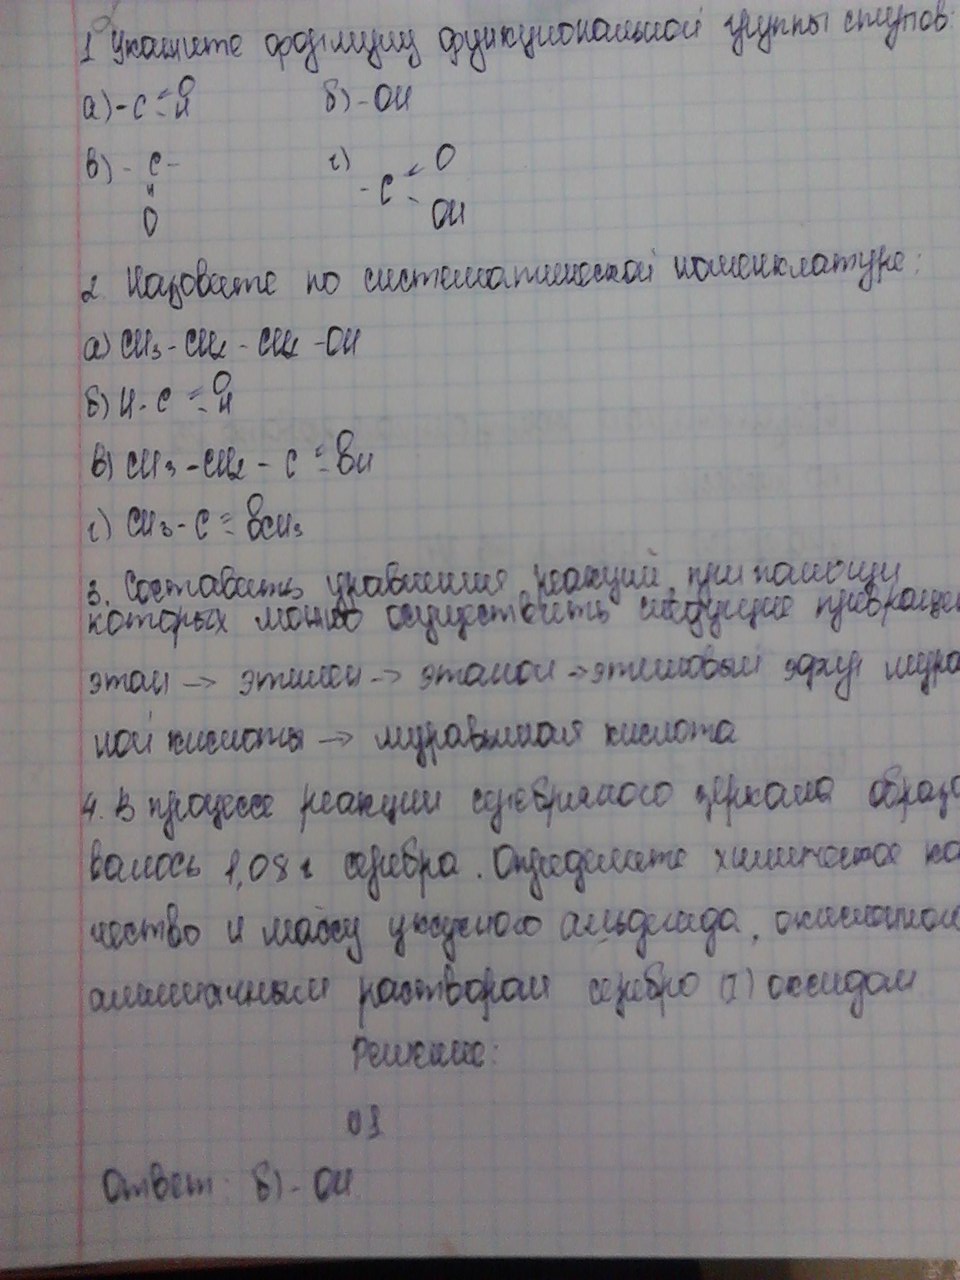 1 Укажите формулу функциональной группы спиртов:
а) -C =O -H б) -OH
в) - C - г) -C =O -OH
=
O
2. Назовите по систематической номенклатуре:
а) CH3 - CH2 - CH2 - OH
б) H - C =O -H
в) CH3 - CH2 - C =O -OH
г) CH3 - C =O -OCH3
3. Составить уравнения реакций, при помощи
которых можно осуществить следующие превращен
этан → этилен → этанол → этиловый эфир мура
ной кислоты → муравьиная кислота
4. В процессе реакции серебряного зеркала образо
валось 1,08 г серебра. Определите химическое ко
чество и массу уксусного альдегида, окисленного
аммиачным раствором серебро (I) оксидом
Решение:
Ответ: б) - OH